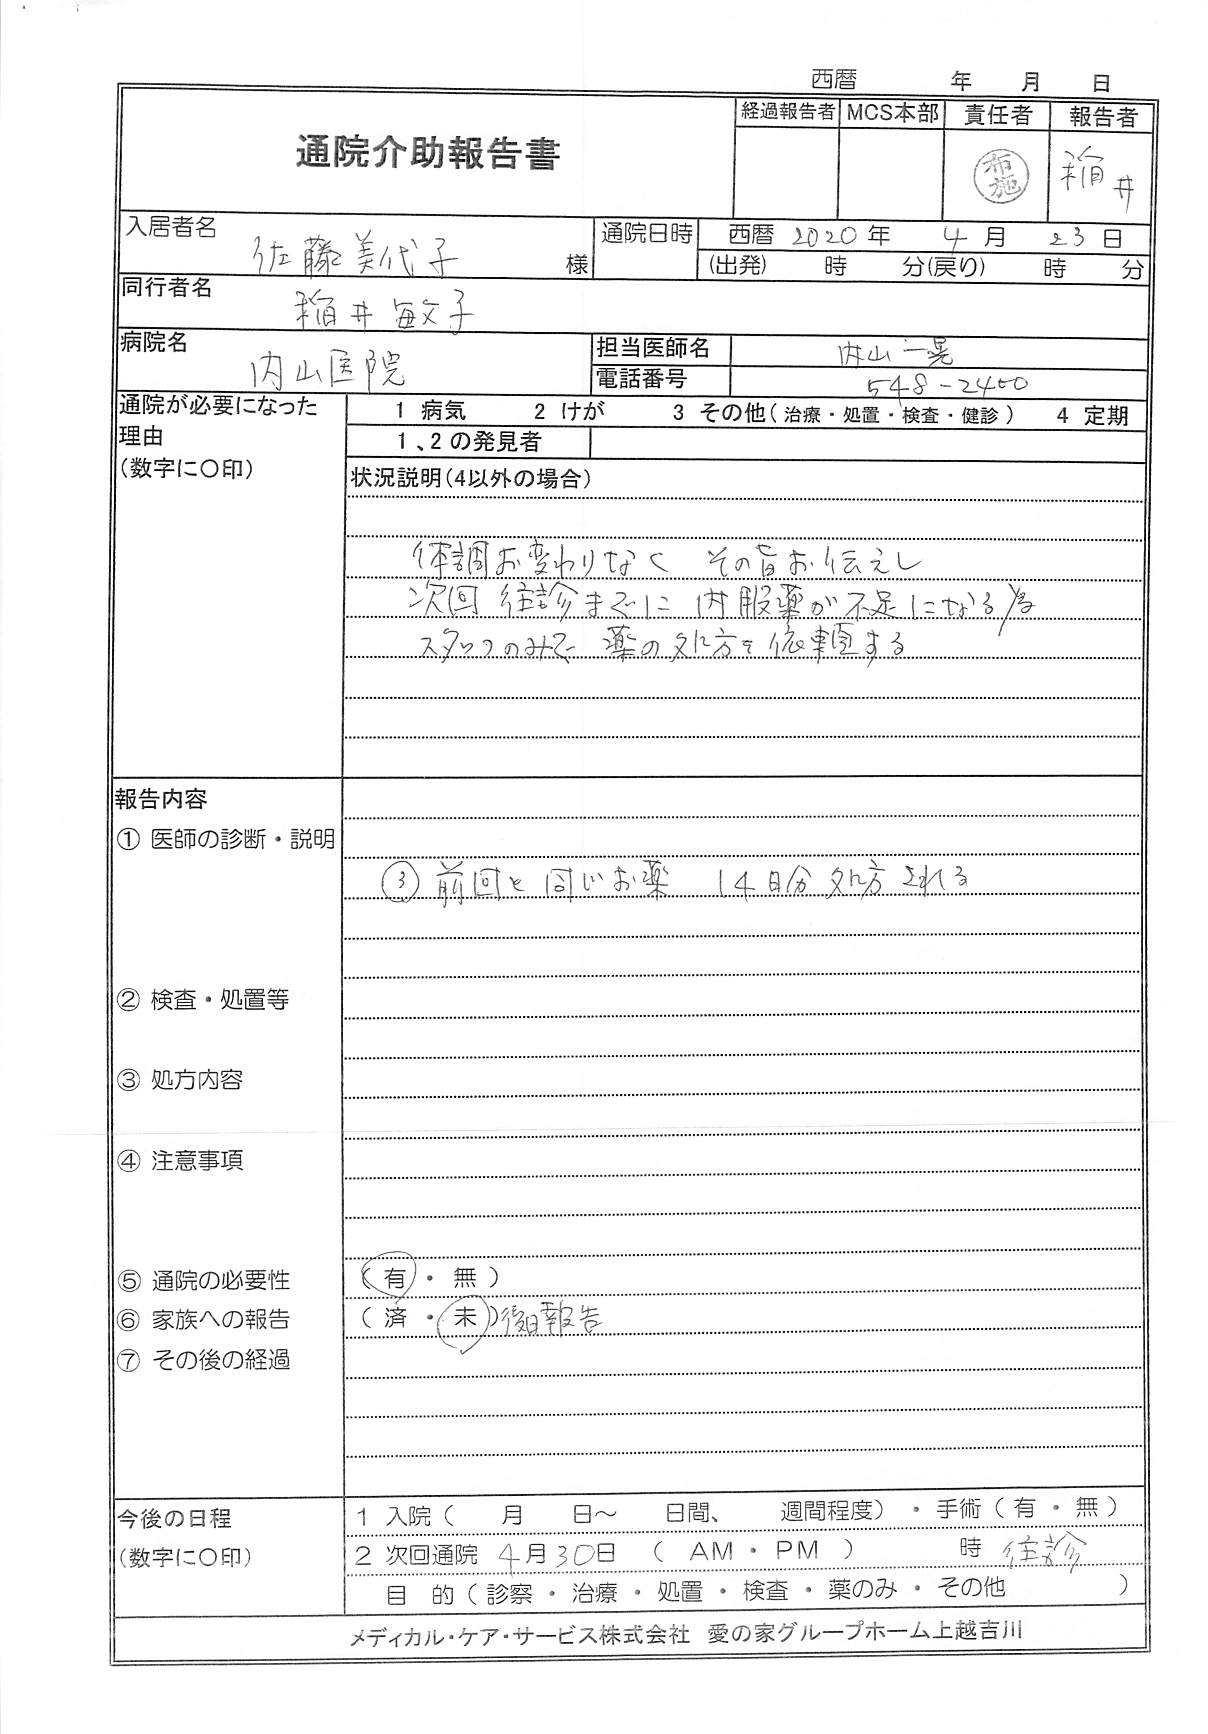 西暦 年 月 日
通院介助報告書
経過報告者 MCS本部 責任者 報告者
布施 稲井
入居者名 佐藤美代子 様
通院日時 西暦 2020 年 4 月 23 日
(出発) 時 分(戻り) 時 分
同行者名 稲井敏子
病院名 内山医院
担当医師名 内山一晃
電話番号 548-2400
通院が必要になった
理由
(数字に〇印)
1 病気 2 けが 3 その他(治療・処置・検査・健診) 4 定期
1、2の発見者
状況説明(4以外の場合)
体調お変わりなく その旨お伝えし
次回 往診までに 内服薬が不足になる為
スタッフのみで 薬の処方を依頼する
報告内容
① 医師の診断・説明
③ 前回と同じお薬 14日分処方される
② 検査・処置等
③ 処方内容
④ 注意事項
⑤ 通院の必要性 (有・無)
⑥ 家族への報告 (済・未)後日報告
⑦ その後の経過
今後の日程
(数字に〇印)
1 入院( 月 日～ 日間、 週間程度) ・手術(有・無)
2 次回通院 4月30日 ( AM・PM ) 時 往診
目 的(診察・治療・処置・検査・薬のみ・その他 )
メディカル・ケア・サービス株式会社 愛の家グループホーム上越吉川